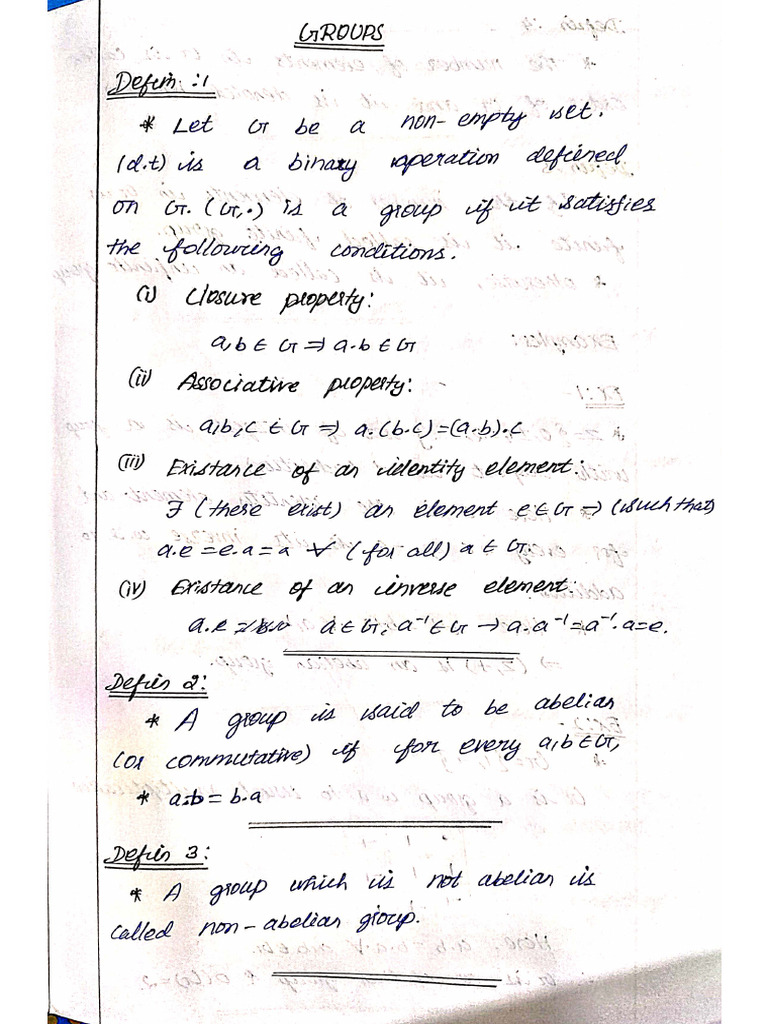 GROUPS
Defin :1
* Let G be a non-empty set.
(d.t) is a binary operation defined
on G. (G,.) is a group if it satisfies
the following conditions.
(i) Closure property:
a,b ∈ G ⇒ a.b ∈ G
(ii) Associative property:
a,b,c ∈ G ⇒ a.(b.c)=(a.b).c
(iii) Existance of an identity element:
∃ (there exist) an element e ∈ G ⇒ (such that)
a.e = e.a = a ∀ (for all) a ∈ G.
(iv) Existance of an inverse element:
a ∈ G, a⁻¹ ∈ G → a.a⁻¹=a⁻¹.a=e.
Defin 2:
* A group is said to be abelian
(or commutative) if for every a,b ∈ G,
* a.b = b.a
Defin 3:
* A group which is not abelian is
called non-abelian group.